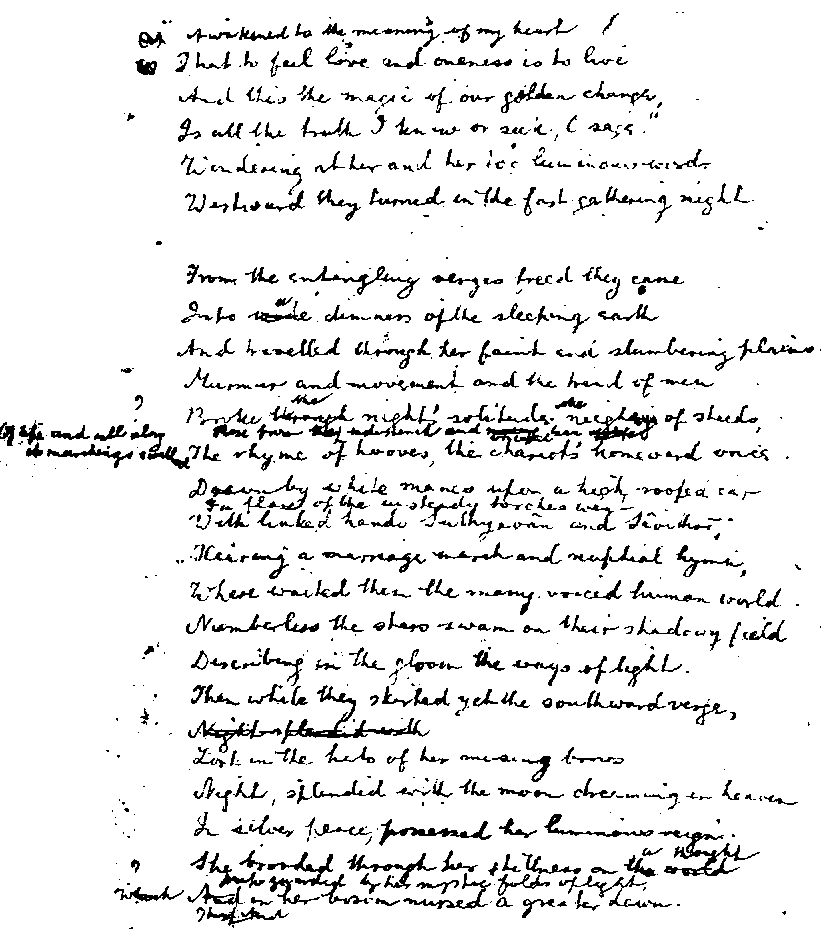 Awakened to the meaning of my heart
That to feel love and oneness is to live
And this the magic of our golden change,
Is all the truth I know or seek, O sage."
Wondering at her and her too luminous words
Westward they turned in the fast gathering night
From the entangling verges freed they came
Into a dimness of the sleeping earth
And travelled through her faint and slumbering plains.
Murmur and movement and the tread of men
Broke the night's solitude the neigh of steeds,
Rose from
Of life and all along
its marchings swelled
The rhyme of hooves, the chariot's homeward voice.
Drawn by white manes upon a high roofed car
In flare of the unsteady torches went
With linked hands Suthyavan and Savithri,
Hearing a marriage march and nuptial hymn,
Where waited them the many voiced human world.
Numberless the stars swam on their shadowy field
Describing in the gloom the ways of light.
Then while they skirted yet the southward verge,
Night splendid with
Lost in the halo of her musing brows
Night, splendid with the moon dreaming in heaven
In silver peace, possessed her luminous reign.
She brooded through her stillness on a thought
the world
guarded by her mystic folds of light,
And in her bosom nursed a greater dawn.